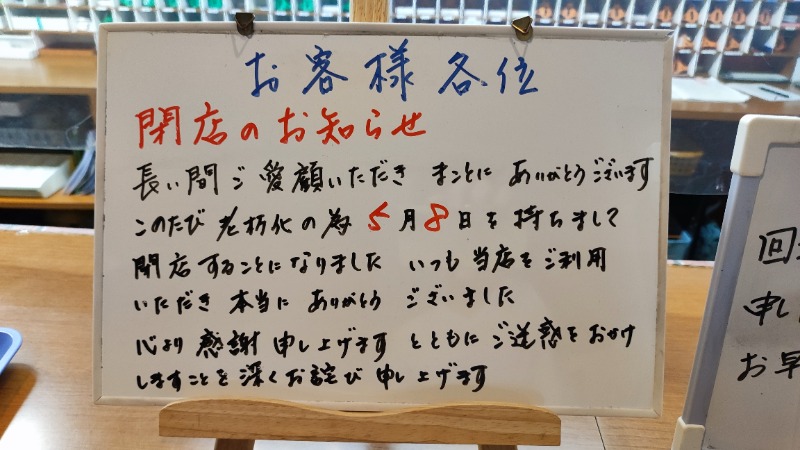 お客様各位
閉店のお知らせ
長い間ご愛顧いただき まことに ありがとうございます
このたび老朽化の為5月8日を持ちまして
閉店することになりました いつも当店をご利用
いただき本当に ありがとう ございました
心より感謝申し上げます とともにご迷惑をおかけ
しますことを深くお詫び申し上げます
回
申し
お早